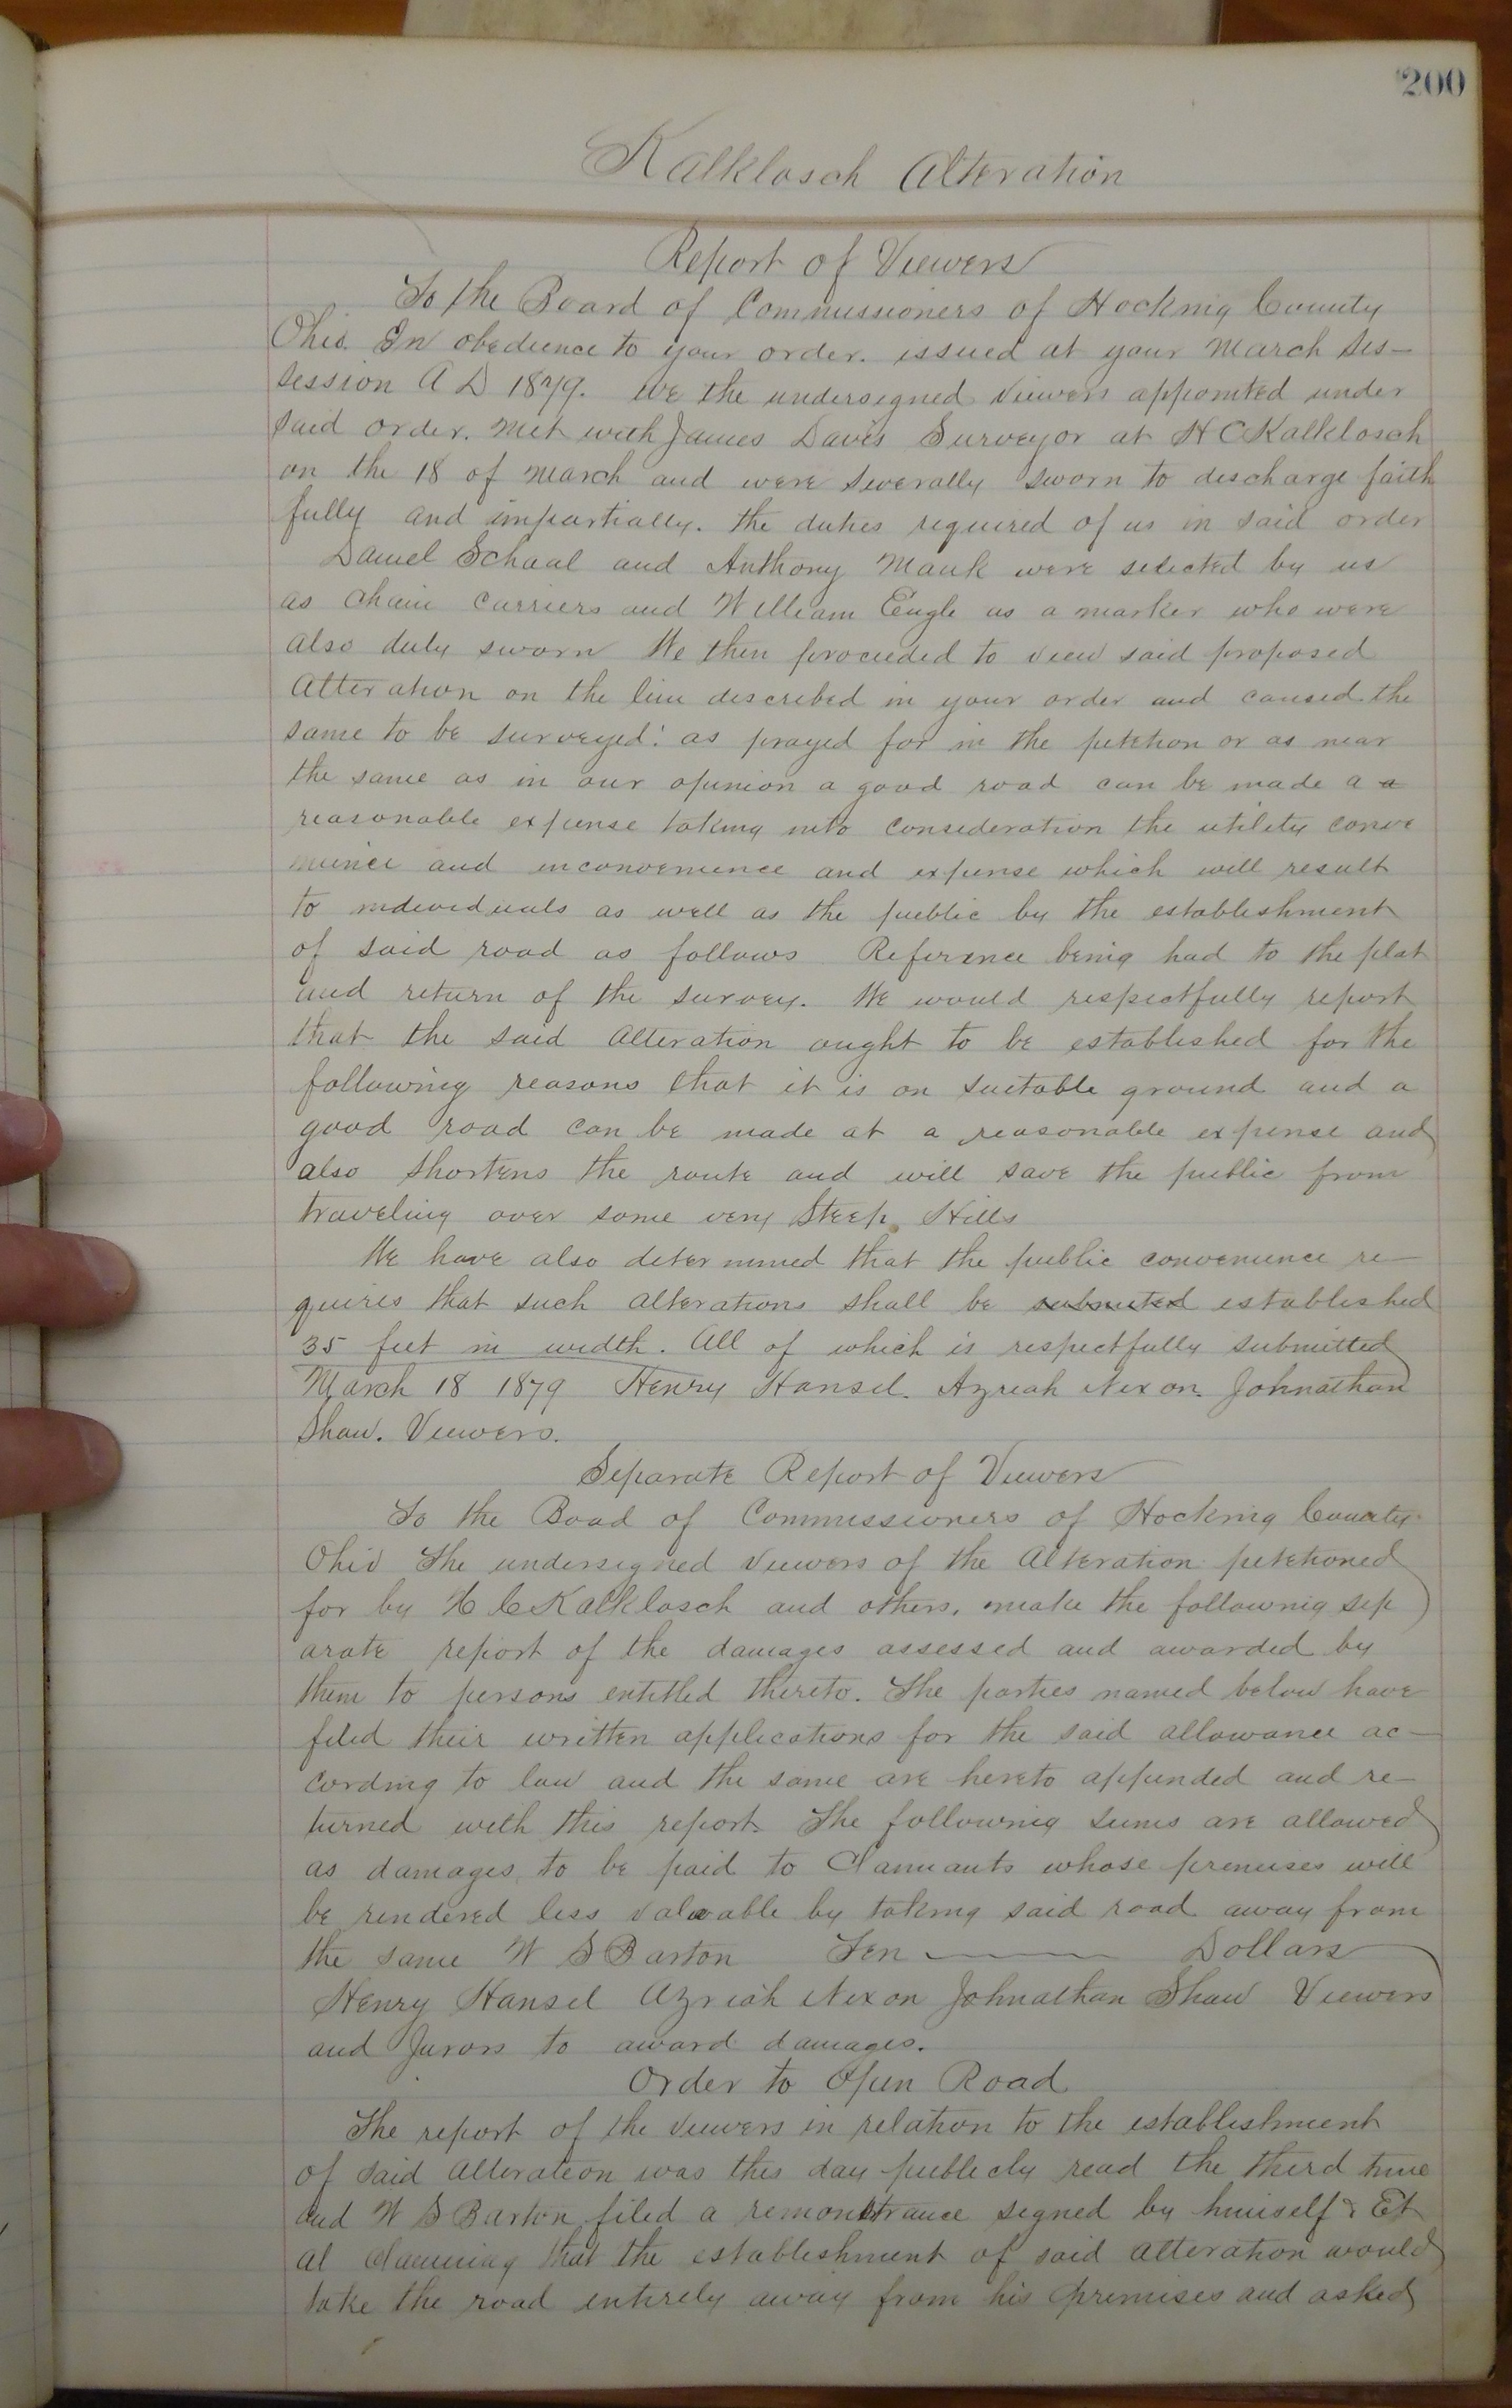 200
Kalklosch Alteration
Report of Viewers
To the Board of Commissioners of Hocking County
Ohio. In obedience to your order. issued at your March Ses-
session A D 1879. We the undersigned Viewers appointed under
said order. met with James Davis Surveyor at H C Kalklosch
on the 18 of March and were severally sworn to discharge faith
fully and impartially. the duties required of us in said order
Daniel Schaal and Anthony Mauk were selected by us
as Chain Carriers and William Eagle as a marker who were
also duly sworn We then proceeded to view said proposed
Alteration on the line described in your order and caused the
same to be surveyed: as prayed for in the petition or as near
the same as in our opinion a good road can be made a a
reasonable expense taking into consideration the utility conve
nience and inconvenience and expense which will result
to individuals as well as the public by the establishment
of said road as follows Reference being had to the plat
and return of the survey. We would respectfully report
that the said Alteration ought to be established for the
following reasons that it is on suitable ground and a
good road can be made at a reasonable expense and
also shortens the route and will save the public from
traveling over some very Steep Hills
We have also determined that the public convenience re-
quires that such alterations shall be submitted established
35 feet in width. All of which is respectfully submitted
March 18 1879 Henry Hansel. Azriah Nixon. Johnathan
Shaw. Viewers.
Separate Report of Viewers
To the Boad of Commissioners of Hocking County
Ohio The undersigned Viewers of the Alteration petitioned
for by H C Kalklosch and others, make the following sep
arate report of the damages assessed and awarded by
them to persons entitled thereto. The parties named below have
filed their written applications for the said allowance ac-
cording to law and the same are hereto appended and re-
turned with this report. The following sums are allowed
as damages to be paid to Claimants whose premises will
be rendered less valuable by taking said road away from
the same W S Barton Ten Dollars
Henry Hansel Azriah Nixon Johnathan Shaw Viewers
and Jurors to award damages.
Order to Open Road
The report of the viewers in relation to the establishment
of said Alteration was this day publicly read the third time
and W S Barton filed a remonstrance signed by himself & Et
al claiming that the establishment of said alteration would
take the road entirely away from his premises and asked